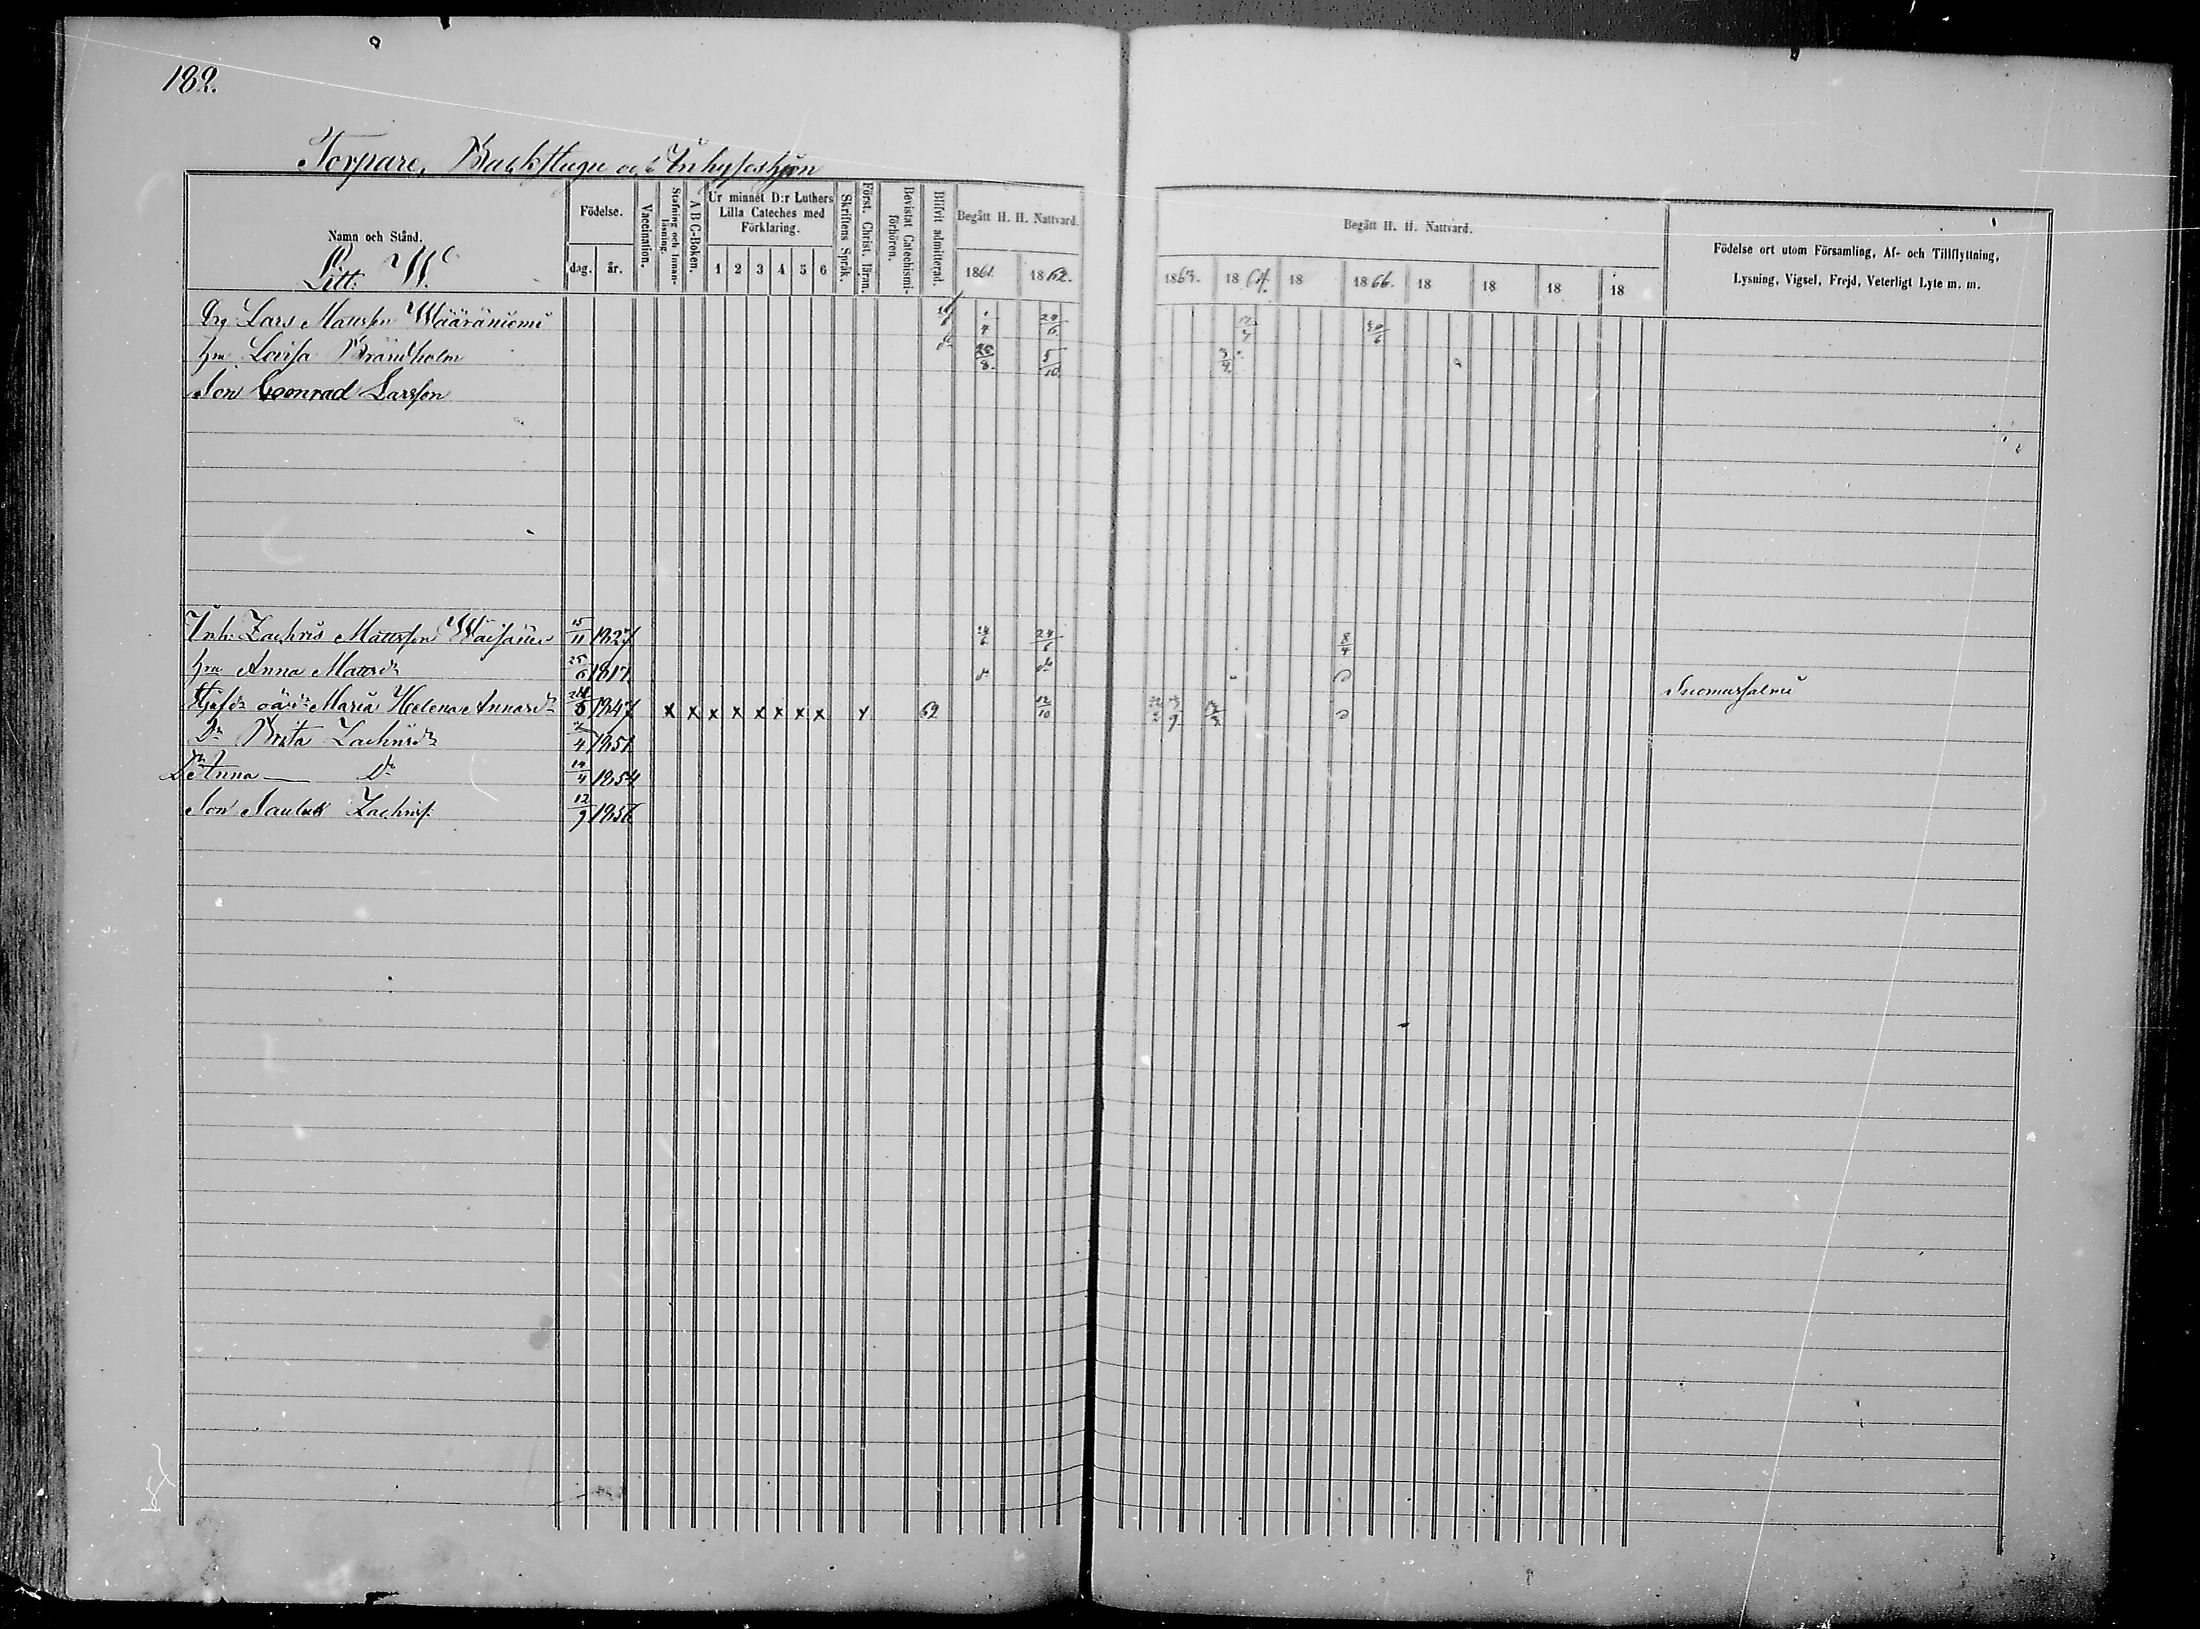 182.
Torpare, Backstugu och Inhyseshjon
Namn och Stånd.
Litt: W.
Födelse.
dag. år.
Vaccination.
Stafning och Innanläsning.
A B C-Boken.
Ur minnet D:r Luthers Lilla Cateches med Förklaring.
1 2 3 4 5 6
Skriftens Språk.
Först. Christ. läran.
Bevistat Catechismiförhören.
Blifvit admitterad.
Begått H. H. Nattvard.
1861. 1862.
Begått H. H. Nattvard.
1863. 1864. 18 1866. 18 18 18 18
Födelse ort utom Församling, Af- och Tillflyttning,
Lysning, Vigsel, Frejd, Veterligt Lyte m. m.
Lars Mattsson Wääräniemi 24/6 12/7 30/6
hu Lovisa Brandholm 20/8 5/10 3/4
Son Conrad Larsson
Inh: Zachris Mattsson Wäisänen 15/11 1827 24/6 24/6 8/4
hu Anna Mattsdr 25/6 1817 do
oä dr Maria Helena Annasdr 5 1847 x x x x x x x x x 62 12/10 Suomussalmi
Dr Brita Zachrisdr 4 1851
Dr Anna — Dr 14/4 1854
Son Paulus Zachriss: 12/9 1856